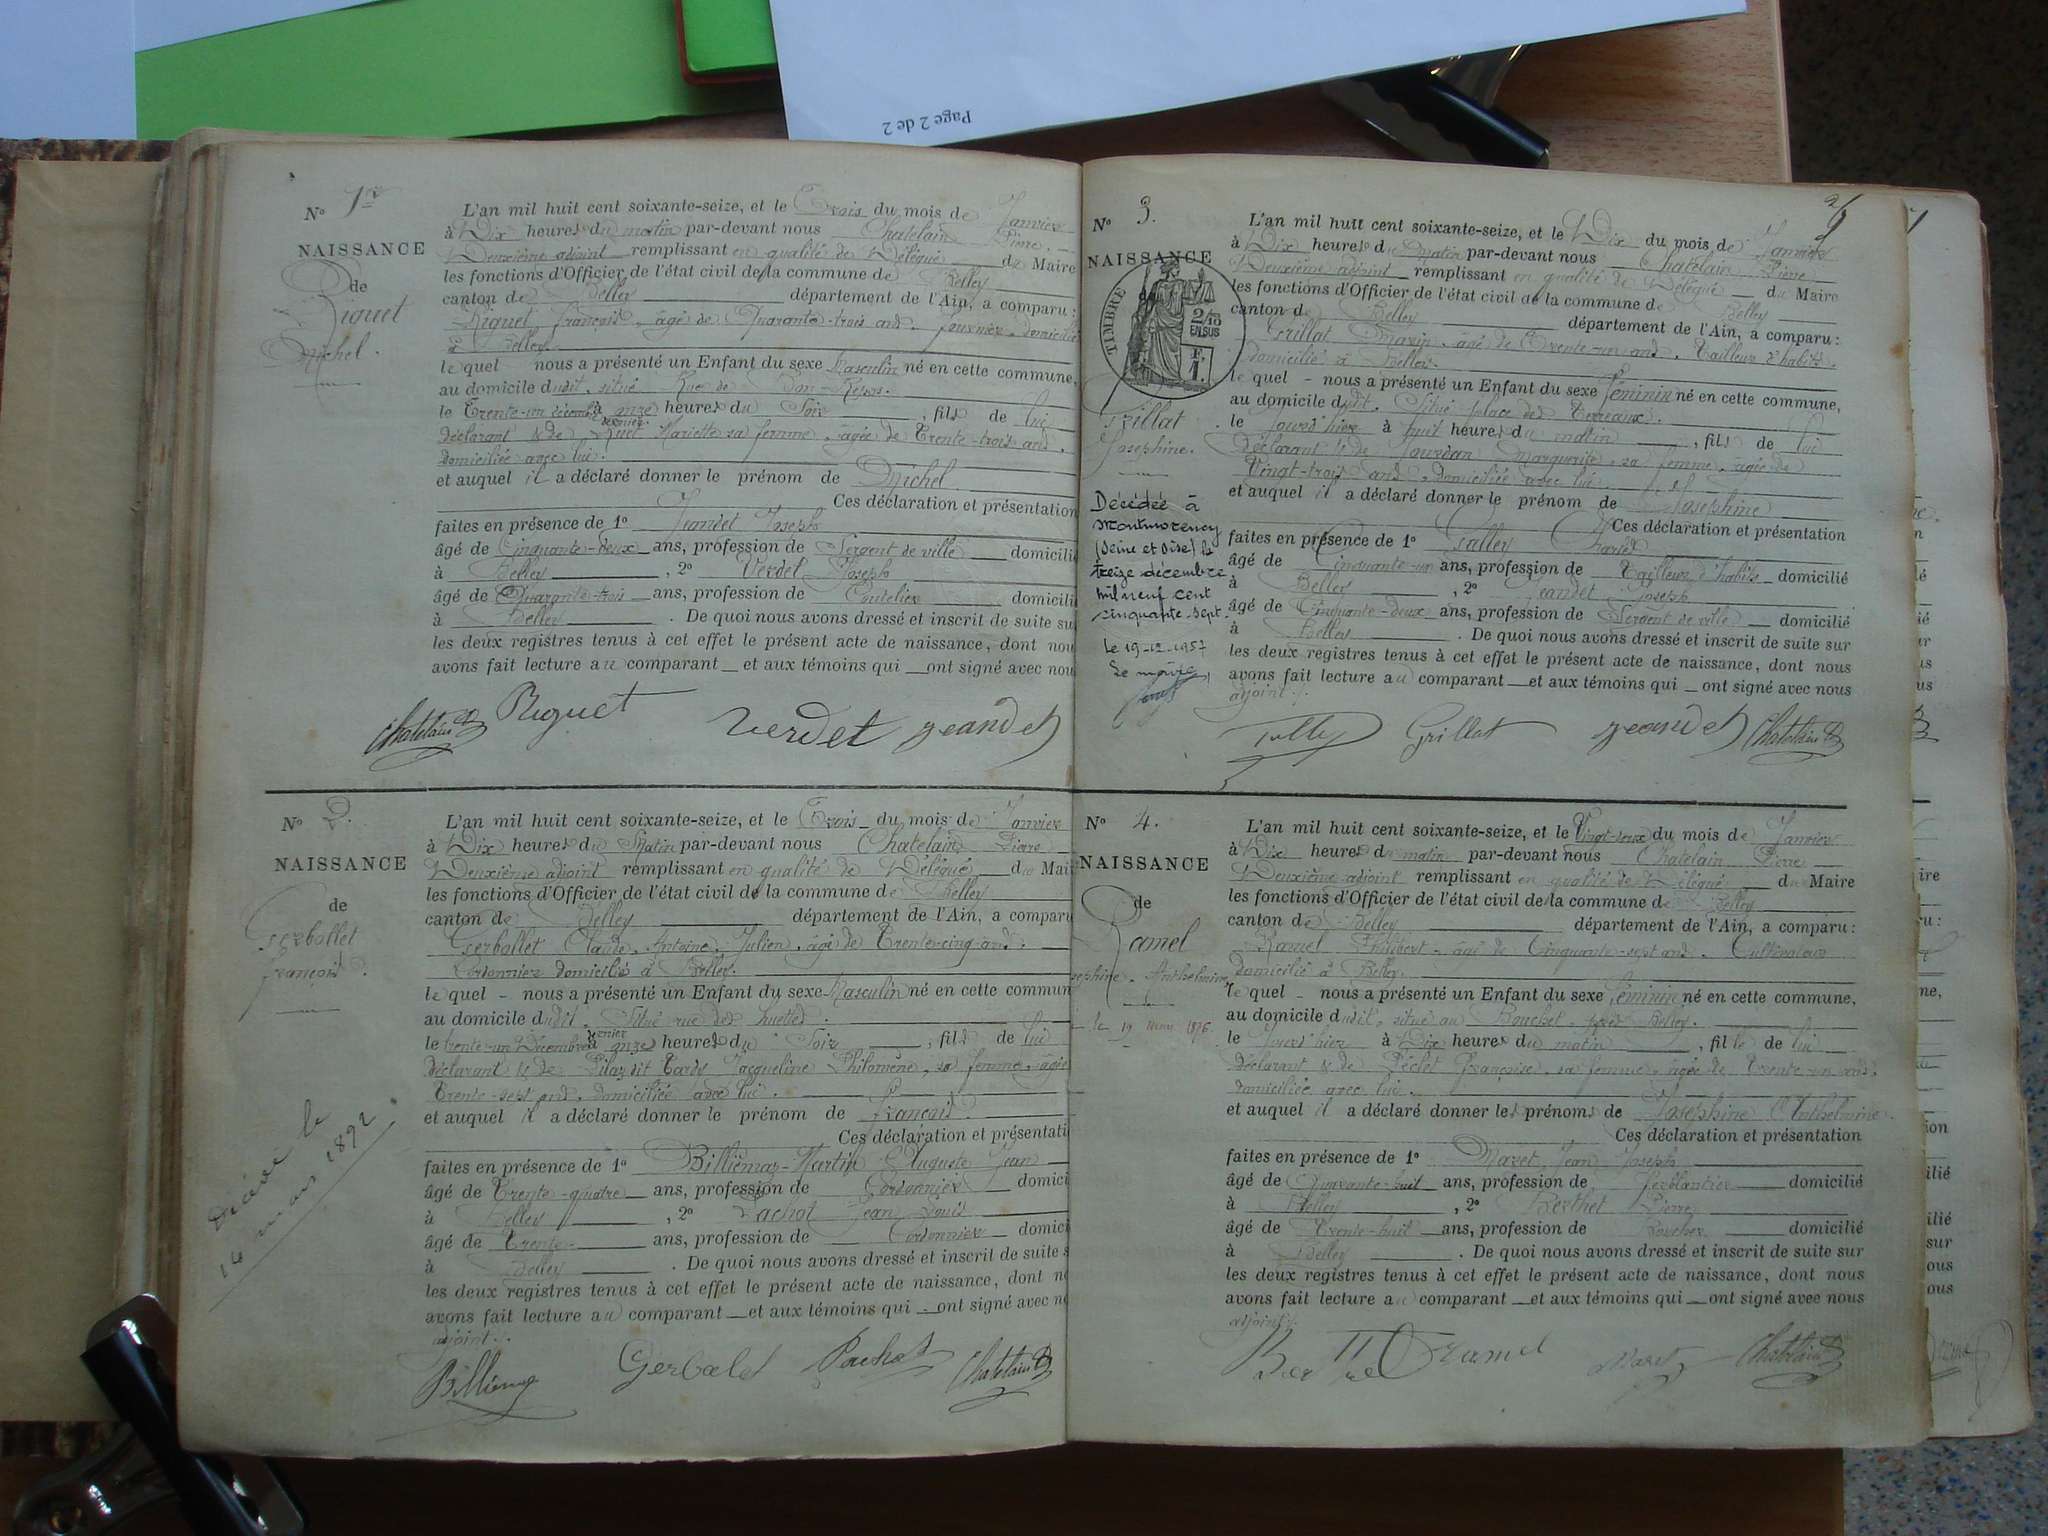 Page 2 de 2
N° 1er
NAISSANCE
de
Riguet
Michel.
L'an mil huit cent soixante-seize, et le Trois du mois de Janvier
à Dix heures du matin par-devant nous Chatelain Pierre
Deuxième adjoint remplissant en qualité de Délégué du Maire
les fonctions d'Officier de l'état civil de la commune de Belley
canton de Belley département de l'Ain, a comparu :
Riguet François, âgé de Quarante-trois ans, domicilié
à Belley.
le quel nous a présenté un Enfant du sexe Masculin né en cette commune,
au domicile dudit, situé Rue de
le Trente-un décembre dernier à onze heures du Soir, fils de lui
déclarant & de Mariette sa femme, âgée de Trente-trois ans,
domiciliée avec lui.
et auquel il a déclaré donner le prénom de Michel
Ces déclaration et présentation
faites en présence de 1° Jeandet Joseph
âgé de Cinquante-deux ans, profession de Sergent de ville domicilié
à Belley, 2° Verdet Joseph
âgé de Quarante-trois ans, profession de Coutelier domicilié
à Belley. De quoi nous avons dressé et inscrit de suite sur
les deux registres tenus à cet effet le présent acte de naissance, dont nous
avons fait lecture au comparant et aux témoins qui ont signé avec nous
Chatelain Riguet Verdet Jeandet
N° 2.
NAISSANCE
de
Gerbollet
François.
Décédé le
16 mars 1892.
L'an mil huit cent soixante-seize, et le Trois du mois de Janvier
à Dix heures du Matin par-devant nous Chatelain Pierre
Deuxième adjoint remplissant en qualité de Délégué du Mai
les fonctions d'Officier de l'état civil de la commune de Belley
canton de Belley département de l'Ain, a comparu
Gerbollet Claude, Antoine, Julien, âgé de Trente-cinq ans,
Cordonnier domicilié à Belley.
le quel - nous a présenté un Enfant du sexe Masculin né en cette commun
au domicile dudit, situé rue des
le trente-un Décembre dernier à onze heures du Soir, fils de lui
déclarant & de Pilaz dit Tardy Jacqueline Philomène, sa femme, âgée
Trente-sept ans, domiciliée avec lui.
et auquel il a déclaré donner le prénom de François
Ces déclaration et présentati
faites en présence de 1° Billiémaz-Martin Auguste Jean
âgé de Trente-quatre ans, profession de Cordonnier domici
à Belley, 2° Pachot Jean Louis
âgé de Trente ans, profession de Cordonnier domici
à Belley. De quoi nous avons dressé et inscrit de suite s
les deux registres tenus à cet effet le présent acte de naissance, dont n
avons fait lecture au comparant et aux témoins qui ont signé avec no
adjoint.
Billiémaz Gerbolet Pachot Chatelain
N° 3.
NAISSANCE
TIMBRE
2/10
EN SUS
F.
1.
Grillat
Josephine.
Décédée à
Montmorency
(Seine et Oise) le
treize décembre
mil neuf cent
cinquante-sept.
Le 19-12-1957
Le maire,
L'an mil huit cent soixante-seize, et le Dix du mois de Janvier
à Dix heures du Matin par-devant nous Chatelain Pierre
Deuxième adjoint remplissant en qualité de Délégué du Maire
les fonctions d'Officier de l'état civil de la commune de Belley
canton de Belley département de l'Ain, a comparu :
Grillat Marin, âgé de Trente-un ans, Tailleur d'habits,
domicilié à Belley.
le quel - nous a présenté un Enfant du sexe féminin né en cette commune,
au domicile dudit, Situé place des Terreaux.
le jour d'hier à huit heures du matin, fils de lui
déclarant & de Jourdan Marguerite, sa femme, âgée de
Vingt-trois ans, domiciliée avec lui.
et auquel il a déclaré donner le prénom de Josephine
Ces déclaration et présentation
faites en présence de 1° Charles
âgé de Cinquante-un ans, profession de Tailleur d'habits domicilié
à Belley, 2° Jeandet Joseph
âgé de Cinquante-deux ans, profession de Sergent de ville domicilié
à Belley. De quoi nous avons dressé et inscrit de suite sur
les deux registres tenus à cet effet le présent acte de naissance, dont nous
avons fait lecture au comparant et aux témoins qui ont signé avec nous
adjoint.
Grillat Jeandet Chatelain
N° 4.
NAISSANCE
de
Ramel
Josephine-Anthelmine
le 19 mars 1876.
L'an mil huit cent soixante-seize, et le Vingt-deux du mois de Janvier
à Dix heures du matin par-devant nous Chatelain Pierre
Deuxième adjoint remplissant en qualité de Délégué du Maire
les fonctions d'Officier de l'état civil de la commune de Belley
canton de Belley département de l'Ain, a comparu :
Ramel Philibert, âgé de Cinquante-sept ans, Cultivateur
domicilié à Belley.
le quel - nous a présenté un Enfant du sexe féminin né en cette commune,
au domicile dudit, situé au Bouchet, près Belley.
le jour d'hier à Dix heures du matin, fille de lui
déclarant & de Péclet Françoise, sa femme, âgée de Trente-un ans,
domiciliée avec lui.
et auquel il a déclaré donner les prénoms de Josephine Anthelmine.
Ces déclaration et présentation
faites en présence de 1° Maret Jean Joseph
âgé de Quarante-huit ans, profession de Ferblantier domicilié
à Belley, 2° Berthet Pierre
âgé de Trente-huit ans, profession de domicilié
à Belley. De quoi nous avons dressé et inscrit de suite sur
les deux registres tenus à cet effet le présent acte de naissance, dont nous
avons fait lecture au comparant et aux témoins qui ont signé avec nous
adjoint.
Berthet Ramel Maret Chatelain